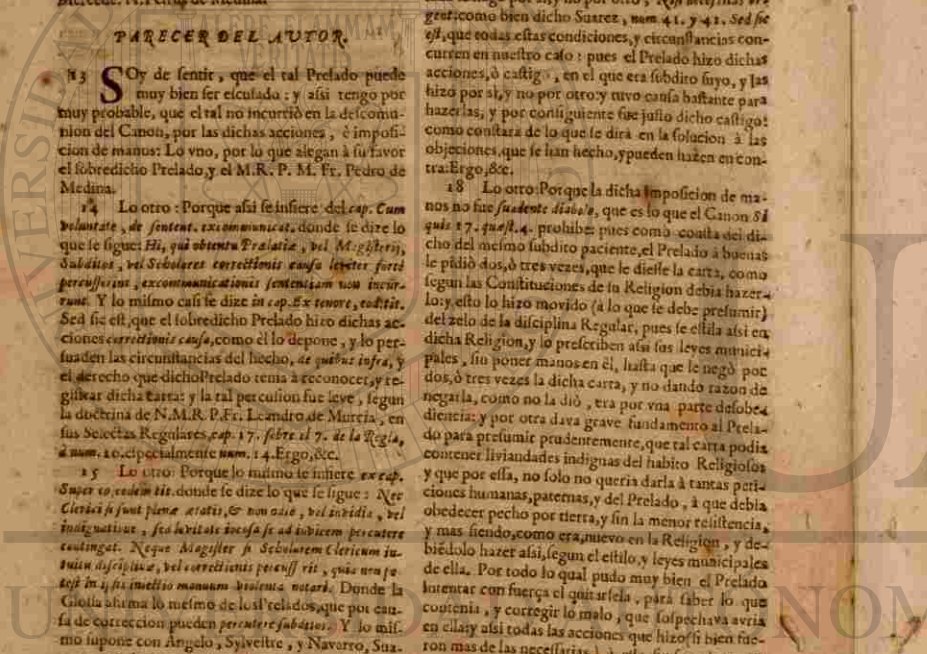 PARECER DEL AVTOR.
13 SOy de sentir, que el tal Prelado puede
muy bien ser escusado: y assi tengo por
muy probable, que el tal no incurriò en la descomu-
nion del Canon, por las dichas acciones, è imposi-
cion de manos: Lo vno, por lo que alegan à su favor
el sobredicho Prelado, y el M.R. P. M. Fr. Pedro de
Medina.
14 Lo otro: Porque assi se infiere del cap. Cum
voluntate, de sentent. excommunicat. donde se dize lo
que se sigue: Hi, qui obtentu Prælatiæ, vel Magisterij,
Subditos, vel Scholares correctionis causa leviter fortè
percusserint, excommunicationis sententiam non incur-
runt. Y lo mismo casi se dize in cap. Ex tenore, eod. tit.
Sed sic est, que el sobredicho Prelado hizo dichas ac-
ciones correctionis causa, como èl lo depone, y lo per-
suaden las circunstancias del hecho, de quibus infra, y
el derecho que dicho Prelado tenia à reconocer, y re-
gistrar dicha carta: y la tal percusion fue leve, segun
la doctrina de N.M.R.P.Fr. Leandro de Murcia, en
sus Selectas Regulares, cap. 17. sobre el 7. de la Regla,
à num. 10. especialmente num. 14. Ergo, &c.
15 Lo otro: Porque lo mismo se infiere ex cap.
Super eo, eodem tit. donde se dize lo que se sigue: Nec
Clerici si sunt plenæ ætatis, & non odio, vel invidia, vel
indignatione, sed levitate iocosa se ad invicem percutere
contingat. Neque Magister si Scholarem Clericum in-
tuitu disciplinæ, vel correctionis percuss rit, quia non po-
test in ipsis iniectio manuum violenta notari. Donde la
Glossa afirma lo mesmo de los Prelados, que por cau-
sa de correccion pueden percutere subditos. Y lo mis-
mo supone con Angelo, Sylvestre, y Navarro, Sua-
gent: como bien dicho Suarez, num. 41. y 42. Sed sic
est, que todas estas condiciones, y circunstancias con-
curren en nuestro caso: pues el Prelado hizo dichas
acciones, ò castigo, en el que era subdito suyo, y las
hizo por sì, y no por otro: y tuvo causa bastante para
hazerlas, y por consiguiente fue justo dicho castigo:
como constarà de lo que se dirà en la solucion à las
objeciones, que se han hecho, y pueden hazen en con-
tra: Ergo, &c.
18 Lo otro: Porque la dicha imposicion de ma-
nos no fue suadente diabolo, que es lo que el Canon Si
quis 17. quæst. 4. prohibe: pues como consta del di-
cho del mesmo subdito paciente, el Prelado à buenas
le pidiò dos, ò tres vezes, que le diesse la carta, como
segun las Constituciones de su Religion debia hazer-
lo: y, esto lo hizo movido (à lo que se debe presumir)
del zelo de la disciplina Regular, pues se estila assi en
dicha Religion, y lo prescriben assi sus leyes munici-
pales, sin poner manos en èl, hasta que le negò por
dos, ò tres vezes la dicha carta, y no dando razon de
negarla, como no la diò, era por vna parte desobe-
diencia: y por otra dava grave fundamento al Prela-
do para presumir prudentemente, que tal carta podia
contener liviandades indignas del habito Religioso
y que por essa, no solo no queria darla à tantas peti-
ciones humanas, paternas, y del Prelado, à que debia
obedecer pecho por tierra, y sin la menor resistencia,
y mas siendo, como era, nuevo en la Religion, y de-
biédolo hazer assi, segun el estilo, y leyes municipales
de ella. Por todo lo qual pudo muy bien el Prelado
intentar con fuerça el quitarsela, para saber lo que
contenia, y corregir lo malo, que sospechava avria
en ella: y assi todas las acciones que hizo (si bien fue-
ron mas de las necessarias)